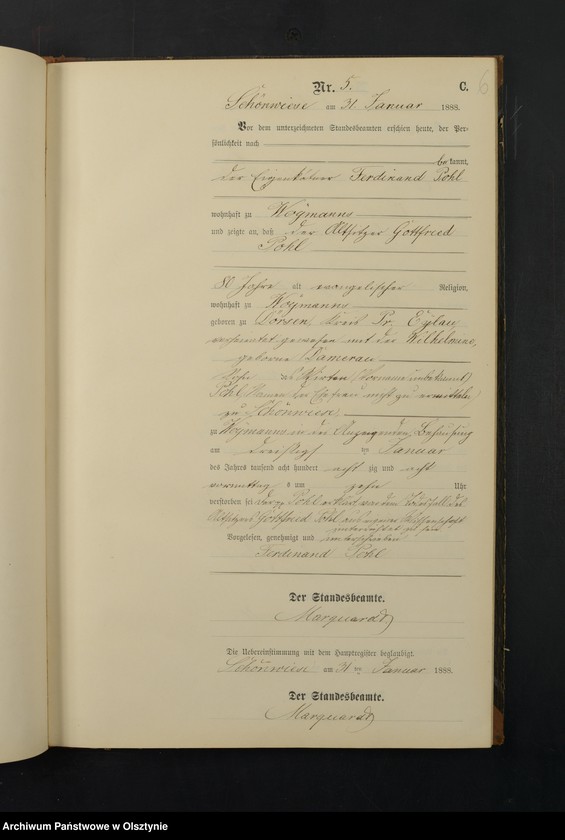 Nr. 5. C. 6
Schönwiese am 31. Januar 1888.
Vor dem unterzeichneten Standesbeamten erschien heute, der Per-
sönlichkeit nach
bekannt,
der Eigenkätner Ferdinand Pohl
wohnhaft zu Woymanns
und zeigte an, daß der Altsitzer Gottfried
Pohl
80 Jahre alt evangelischer Religion,
wohnhaft zu Woymanns
geboren zu Dorsen, Kreis Pr. Eylau
verheirathet gewesen mit der Wilhelmine,
geborene Damerau
Sohn des Wirten (Vorname unbekannt)
Pohl Namen der Ehefrau nicht zu ermitteln
zu Schönwiese
zu Woymanns in der Anzeigenden Behausung
am dreißigsten Januar
des Jahres tausend acht hundert achtzig und acht
vormittags um zehn Uhr
verstorben sei. Pohl erklärt, von dem Todesfall des
Altsitzers Gottfried Pohl aus eigener Wissenschaft
unterrichtet zu sein
Vorgelesen, genehmigt und unterschrieben
Ferdinand Pohl
Der Standesbeamte.
Marquardt
Die Uebereinstimmung mit dem Hauptregister beglaubigt.
Schönwiese am 31 ten Januar 1888.
Der Standesbeamte.
Marquardt
Archiwum Państwowe w Olsztynie